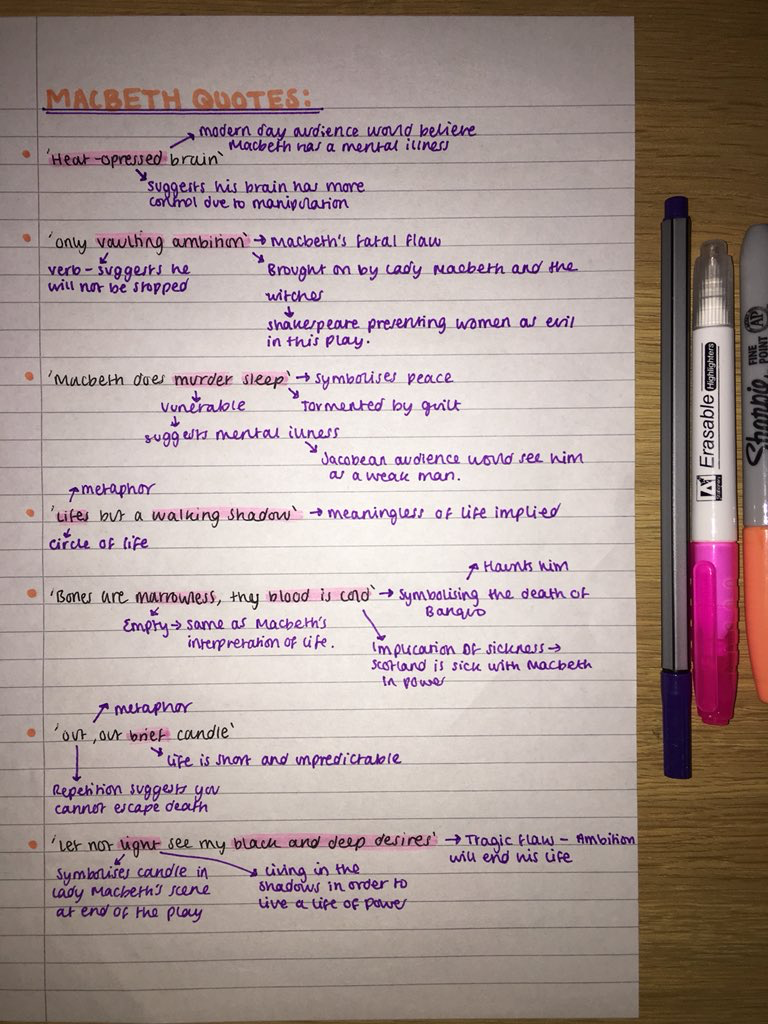 MACBETH QUOTES:
modern day audience would believe
Macbeth has a mental illness
'Heat-opressed brain'
suggests his brain has more
control due to manipulation
'only vaulting ambition' → Macbeth's fatal flaw
verb - suggests he
will not be stopped
Brought on by Lady Macbeth and the
witches
Shakespeare presenting women as evil
in this play.
'Macbeth does murder sleep' → symbolises peace
vunerable
Tormented by guilt
suggests mental illness
Jacobean audience would see him
as a weak man.
metaphor
'Lifes but a walking shadow' → meaningless of life implied
circle of life
Haunts him
'Bones are marrowless, they blood is cold' → symbolising the death of
Banquo
Empty → same as Macbeth's
interpretation of life.
Implication of sickness →
Scotland is sick with Macbeth
in power
metaphor
'out, out brief candle'
Life is short and unpredictable
Repetition suggests you
cannot escape death
'Let not light see my black and deep desires' → Tragic flaw - Ambition
will end his life
symbolises candle in
Lady Macbeth's scene
at end of the play
Living in the
shadows in order to
live a life of power
Erasable Highlighters
Sharpie
FINE
POINT
AP